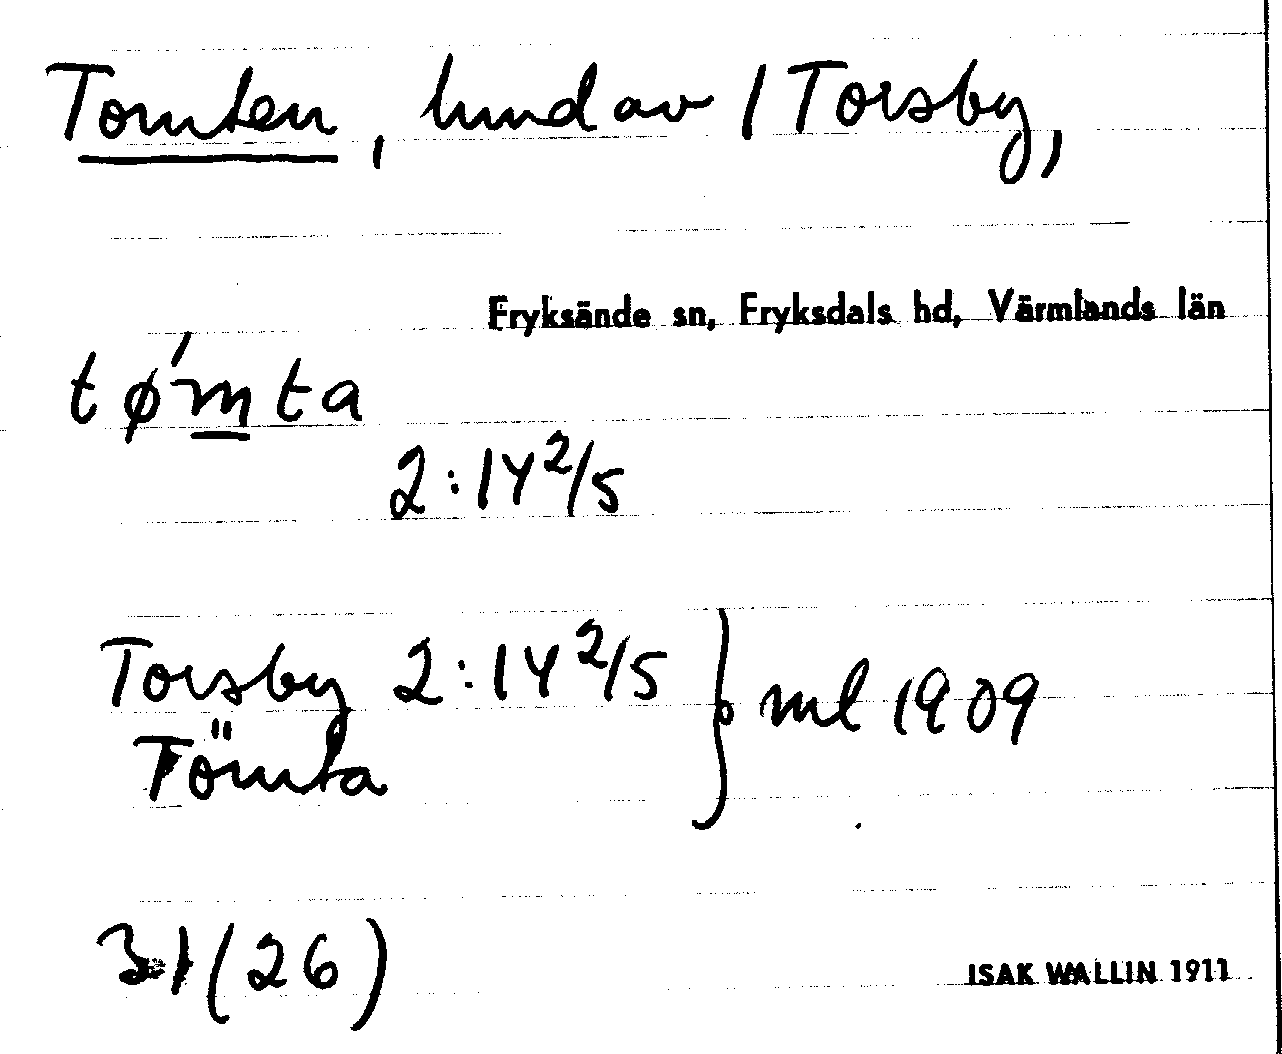 Tomten, hmd av 1 Torsby,
Fryksände sn, Fryksdals hd, Värmlands län
tø´mta
2:14 2/5
Torsby 2:14 2/5 } ml 1909
Tömta
31 (26)
ISAK WALLIN 1911